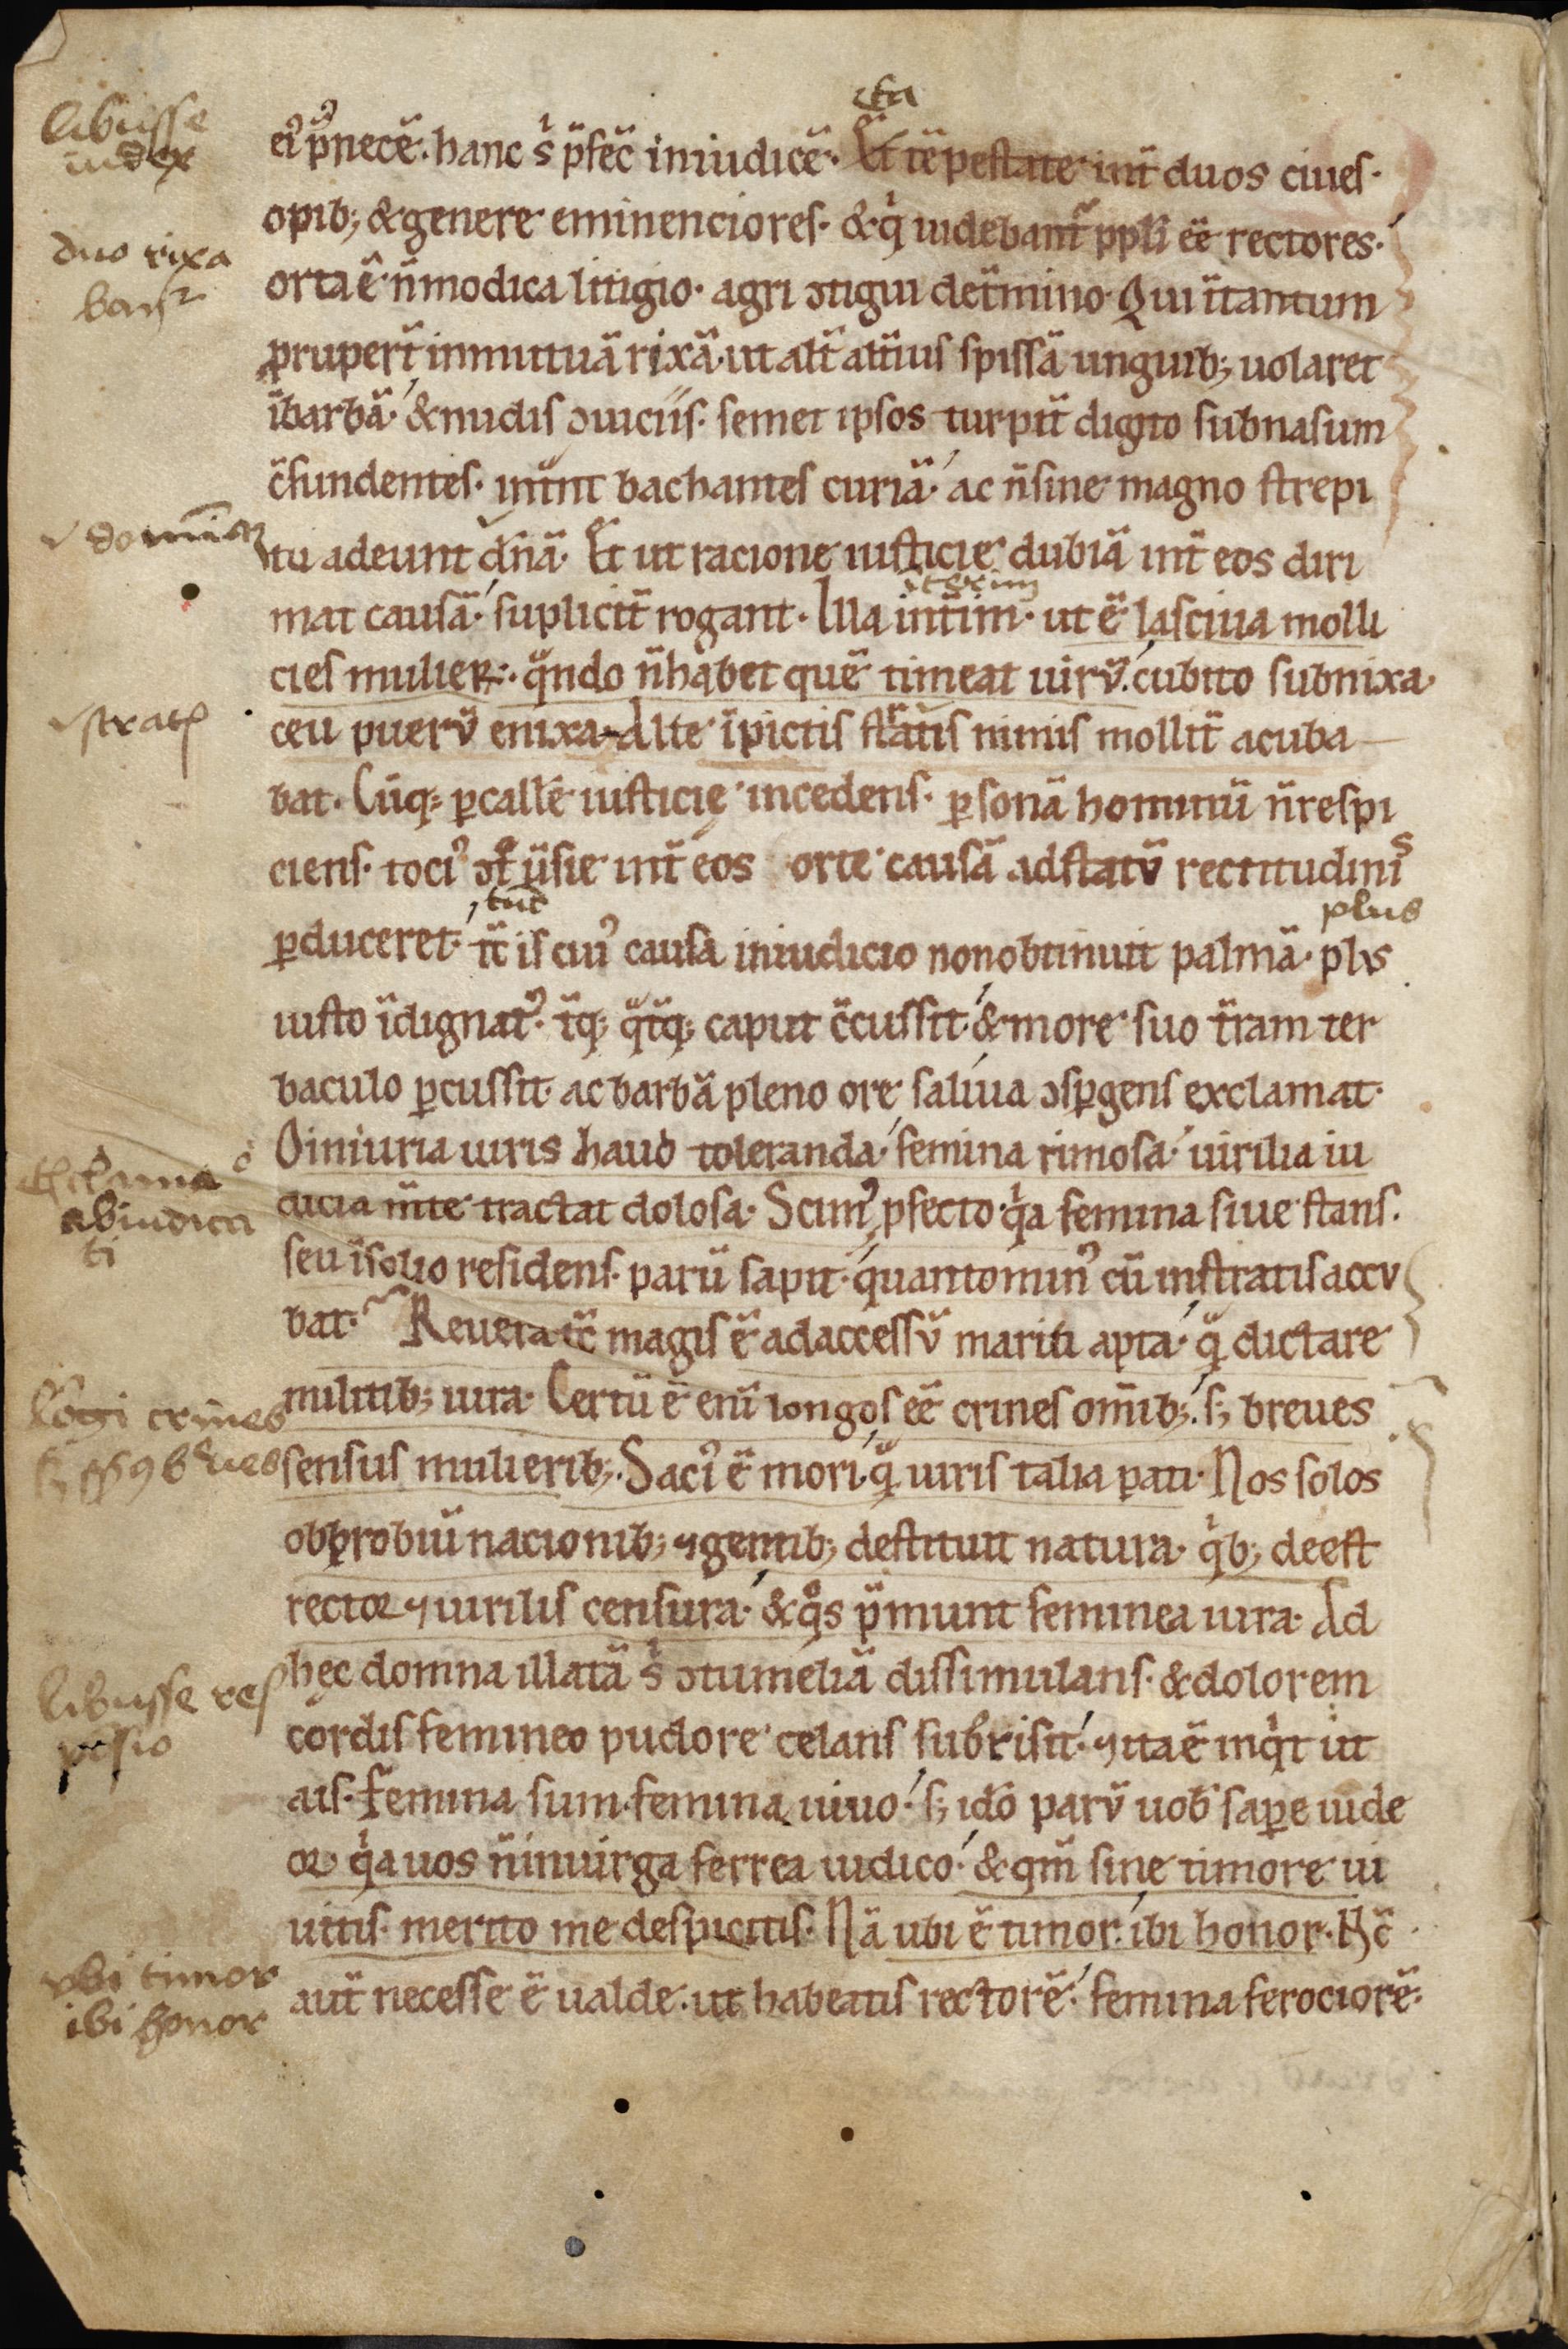 libusse
iudex
cta
ei᾿ p᾿necē. hanc s̄ p̄fec̄ iniudicē. Ea tēpestate int̄ duos ciues.
opib; & genere eminenciores. & q̄ uidebant̄ ppl̄i ēē rectores.
duo rixa
bant᷑
orta ē n̄modica litigio. agri ɔtigui det̄mino. Qui ītantum
prupert̄ inmutuā rixā. ut alt̄ alt̄ius spissā unguib; uolaret
ībarbā. & nudis ɔuiciis. semet ipsos turpit̄ digito subnasum
c̄fundentes. int̄nt bachantes curiā. ac n̄sine magno strepi
dominā
tu adeunt dn̄ā. Et ut racione iusticie dubiā int̄ eos diri
iterim
mat causā. suplicit̄ rogant. Illa int̄im. ut ē lasciua molli
cies mulieR. qn̄do n̄habet quē timeat uirū. cubito subnixa
stratꝭ
ceu puerū enixa. Alte īpictis stratis nimis mollit̄ acuba
bat. Cūq; ꝑcallē iusticię incedens. ꝑsonā hominū n̄respi
ciens. toci᾿ ɔtͦu̅sie int̄ eos orte causā adstatū rectitudinis
tūc
plus
ꝑduceret. tc̄ is cui᾿ causa iniudicio nonobtinuit palmā. plus
iusto īdignat᾿. t̄q; q̄t̄q; caput c̄cussit. & more suo t̄ram ter
baculo ꝑcussit. ac barbā pleno ore saliua ɔsꝑgens exclamat.
O iniuria uiris haud toleranda. femina rimosa. uirilia iu
Exclama o᷑
abiudica
ti
dicia m̄te tractat dolosa. Scim᾿ ꝓfecto. qͥa femina siue stans.
seu īsolio residens. parū sapit. quantomin᾿ cū instratis accu
bat. Reuera tc̄ magis ē adaccessū mariti apta. q̄ dictare
Lōgi crines
s; sēs᾿ bͬues
militib; iura. Certū ē eni̅ longos ēē crines om̄ib;. s; breues
sensus mulierib;. Saci᾿ ē mori. q̄ uiris talia pati. Nos solos
obprobiū nacionib; ⁊gentib; destituit natura. qͥb; deest
rector ⁊uirilis censura. & qͦs p̄munt feminea iura. Ad
libusse res
pōsio
hęc domna illatā sͥ ɔtumeliā dissimulans. & dolorem
cordis femineo pudore celans subrisit. ⁊ita ē inqͥt ut
ais. femina sum. femina uiuo. s; idō parū uob̄ saꝑe uide
or qͥa uos n̄inuirga ferrea iudico. & qm̄ sine timore ui
uitis. merito me despicitis. Nā ubi ē timor. ibi honor. Hc̄
vbi timor
ibi honor
aut̄ necesse ē ualde. ut habeatis rectorē. femina ferociorē.